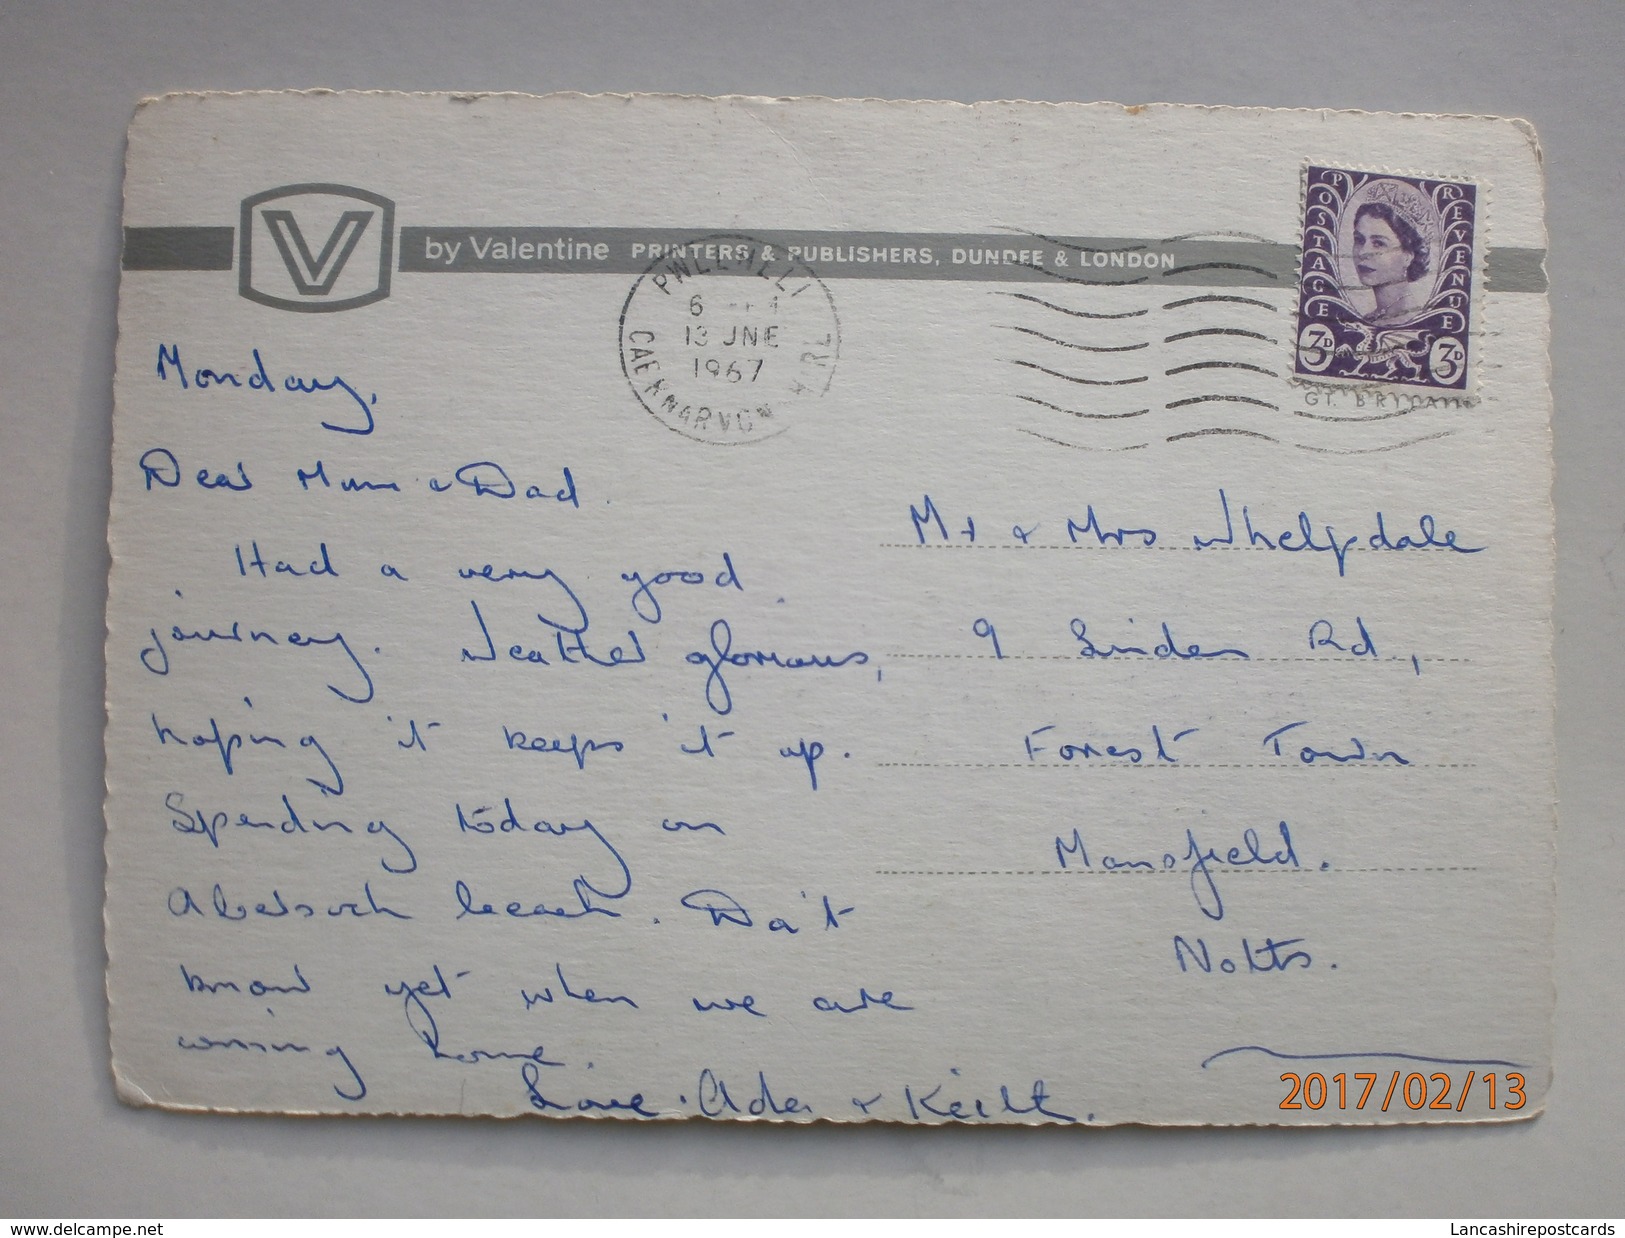 V
by Valentine PRINTERS & PUBLISHERS, DUNDEE & LONDON
POSTAGE REVENUE
3D 3D
PWLLHELI
6
13 JNE
1967
CAERNARVON
GT. BRITAIN
Monday,
Dear Mum & Dad.
Had a very good
journey. Weather glorious,
hoping it keeps it up.
Spending today on
Abersoch beach. Don't
know yet when we are
coming home.
Love. & Keith.
Mr & Mrs Whelpdale
9 Linden Rd,
Forest Town
Mansfield.
Notts.
2017/02/13
www.delcampe.net
Lancashirepostcards